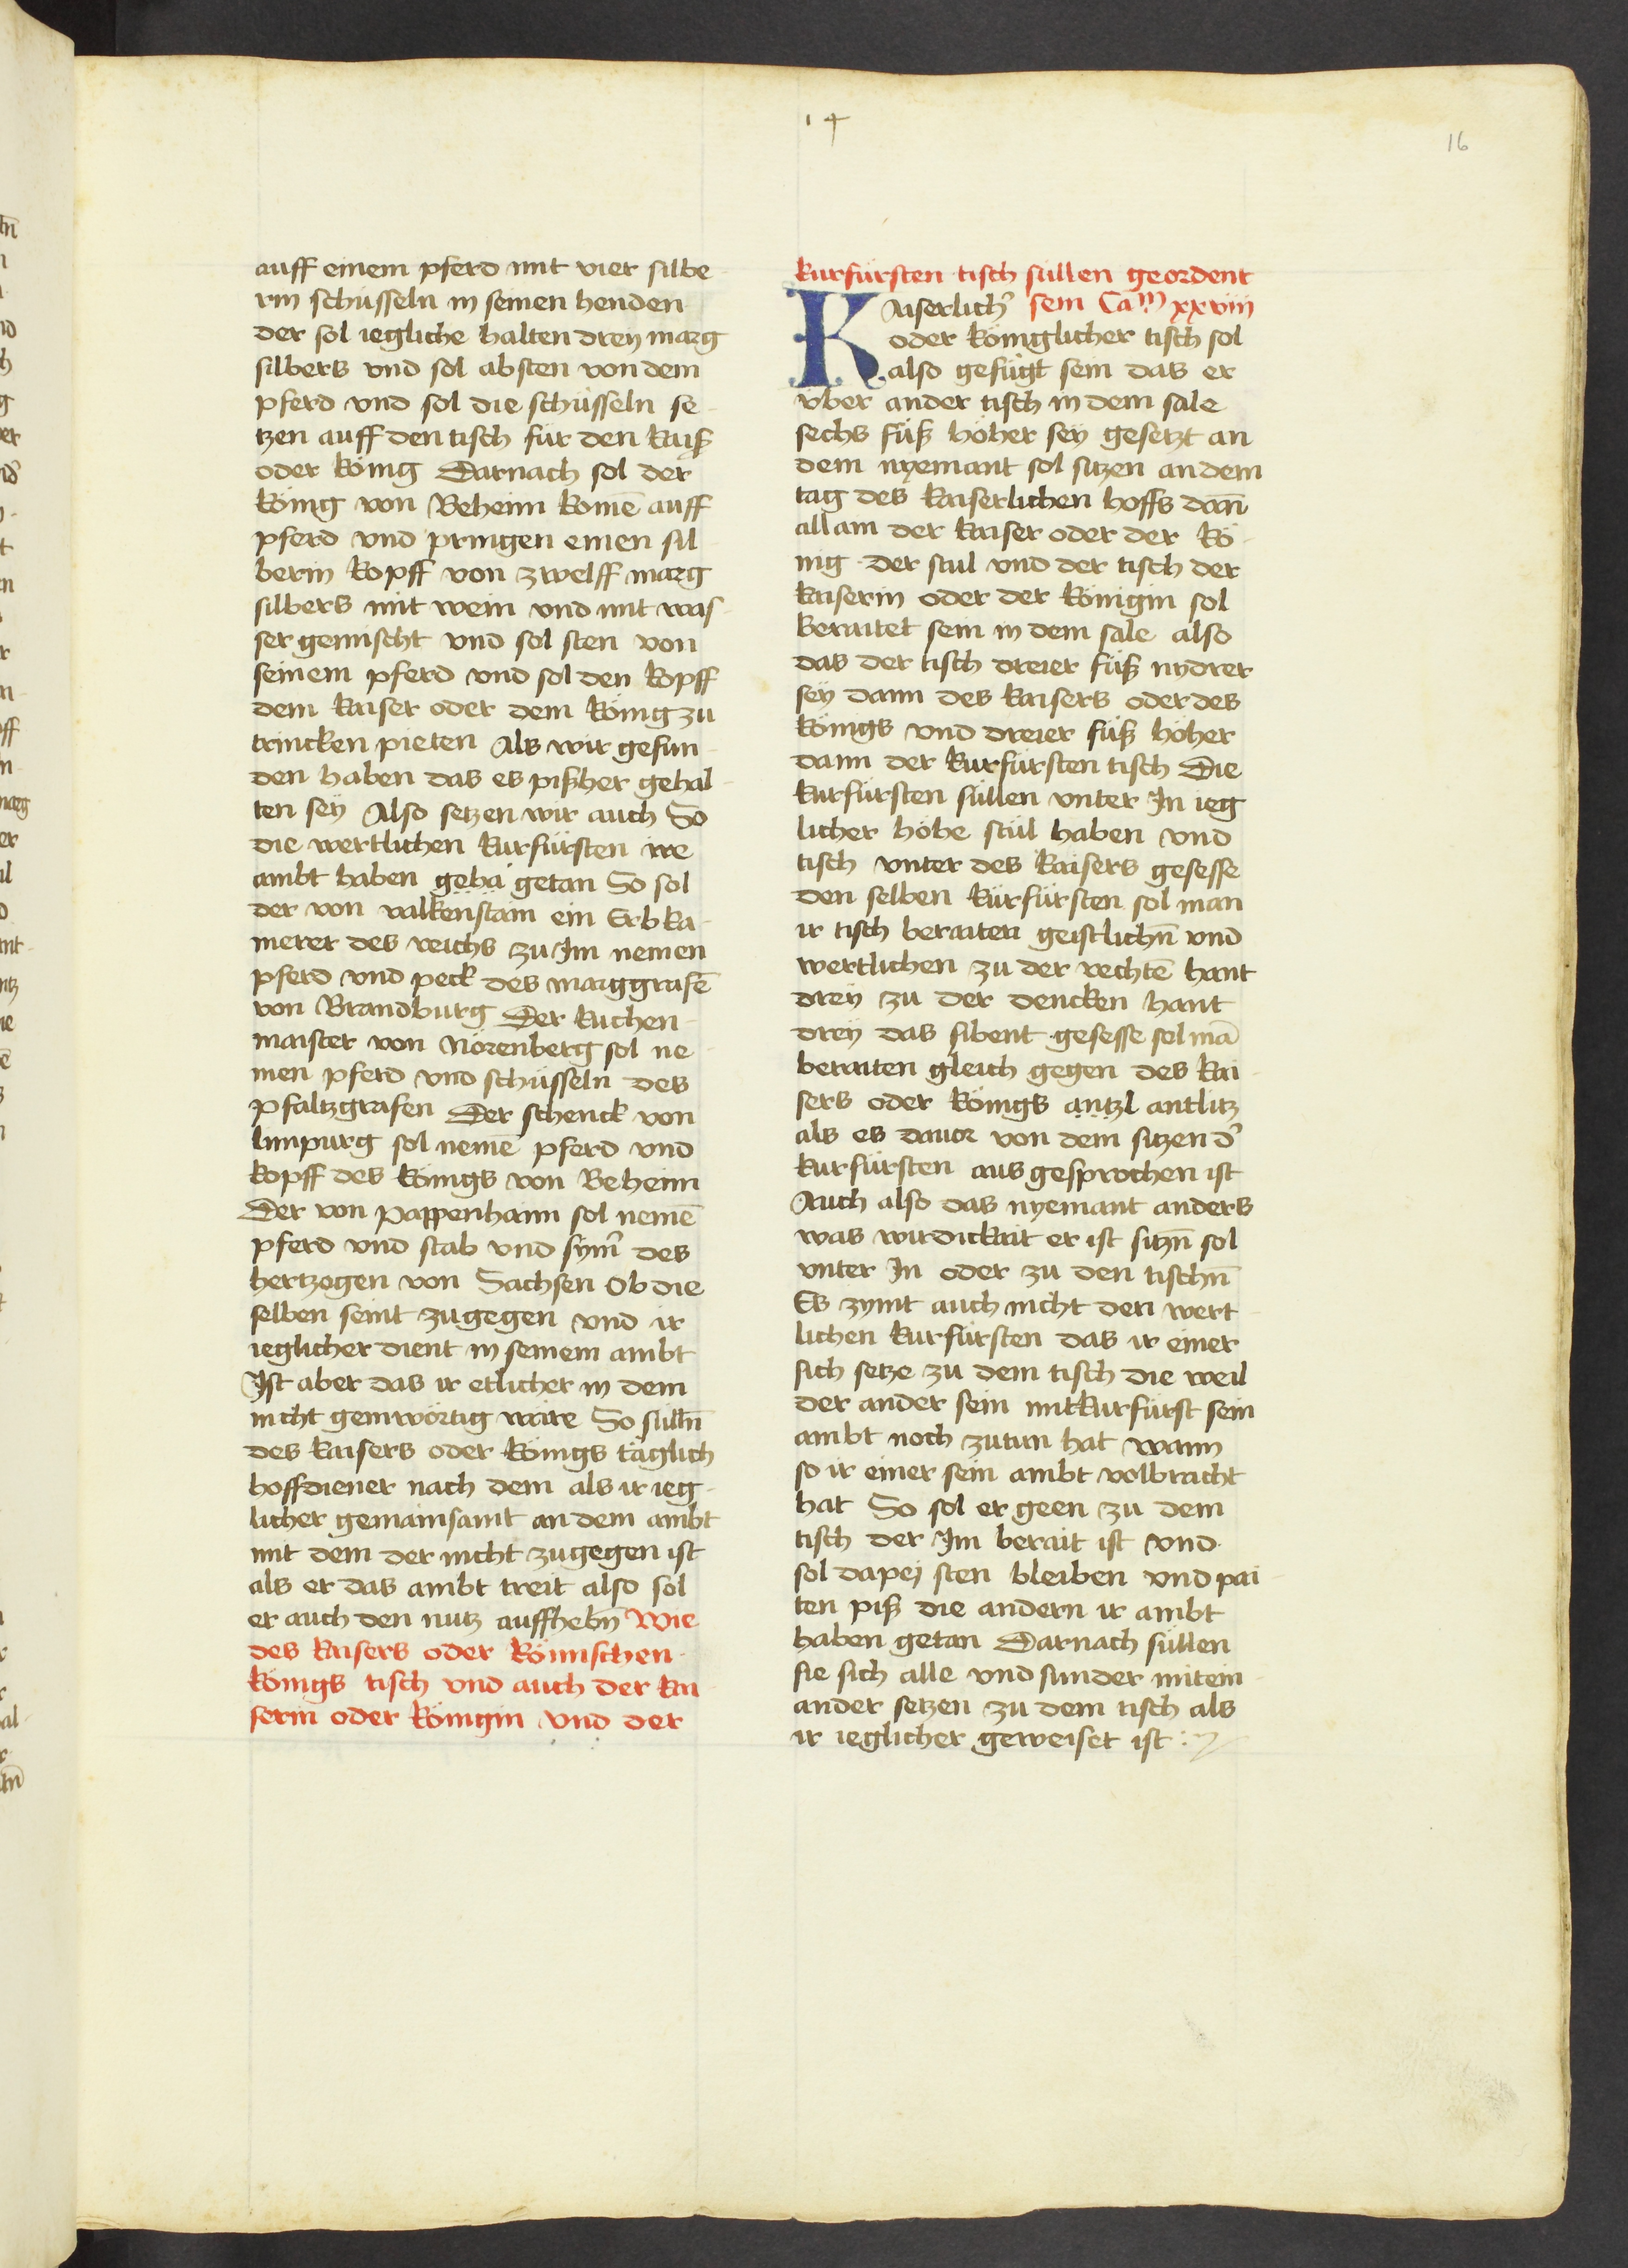 14
16
auff einem pferd mit vier silbe
rin schüsseln in seinen henden
der sol iegliche halten drey marg
silbers vnd sol absten von dem
pferd vnd sol die schüsseln se
tzen auff den tisch für den kaiser
oder König Darnach sol der
König von Beheim komē auff
pferd vnd pringen einen sil
berin kopff von zwelff marg
silbers mit wein vnd mit was
ser gemischt vnd sol sten von
seinem pferd vnd sol den kopff
dem kaiser oder dem König zu
trincken pieten Als wir gefun
den haben das es pißher gehal
ten sey Also setzen wir auch So
die wertlichen kurfürsten ire
ambt haben geha getan So sol
der von valkenstain ein Erbka
merer des reichs zu Im nemen
pferd vnd peck des marggrafē
von Brandburg Der kuchen
maister von Nörenberg sol ne
men pferd vnd schüsseln des
pfaltzgrafen Der schenck von
limpurg sol nemē pferd vnd
kopff des Königs von Beheim
Der von pappenhaim sol nemē
pferd vnd stab vnd sym̄ des
hertzogen von Sachsen Ob die
selben seint zugegen vnd ir
ieglicher dient in seinem ambt
Ist aber das ir etlicher in dem
nicht genwörtig wäre So sülln̄
des kaisers oder Königs täglich
hoffdiener nach dem als ir ieg
licher gemainsamt an dem ambt
mit dem der nicht zugegen ist
als er das ambt treit also sol
er auch den nutz auffhebn̄ Wie
des kaisers oder Römischen
Königs tisch vnd auch der kai
serin oder Königin vnd der
kurfürsten tisch süllen geordent
Kaiserlich' sein Ca^m xxviii
oder Königlicher tisch sol
also gefügt sein das er
vber ander tisch in dem sale
sechs füß höher sey gesetzt an
dem nyemant sol sitzen an dem
tag des kaiserlichen hoffs dan̄
allain der kaiser oder der Kö
nig Der stul vnd der tisch der
kaiserin oder der Königin sol
beraitet sein in dem sale also
das der tisch dreier füß nydrer
sey dann des kaisers oder des
Königs vnd dreier füß höher
dann der kurfürsten tisch Die
kurfürsten süllen vnter In ieg
licher höhe stül haben vnd
tisch vnter des kaisers gesesse
den selben kürfürsten sol man
ir tisch beraiten geistlichn̄ vnd
wertlichen zu der rechtē hant
drey zu der dencken hant
drey das sibent gesesse sol mā
beraiten gleich gegen des kai
sers oder Königs antzl antlitz
als es dauor von dem sitzen d'
kurfürsten aus gesprochen ist
Auch also das nyemant anders
was wirdickait er ist sitzn̄ sol
vnter In oder zu den tischn̄
Es zymt auch nicht den wert
lichen kurfürsten das ir einer
sich setze zu dem tisch die weil
der ander sein mitkurfürst sein
ambt noch zutun hat wann
so ir einer sein ambt volbracht
hat So sol er geen zu dem
tisch der Im berait ist vnd
sol dapej sten bleiben vnd pai
ten piß die andern ir ambt
haben getan Darnach süllen
sie sich alle vnd sunder mitein
ander setzen zu dem tisch als
ir ieglicher geweiset ist